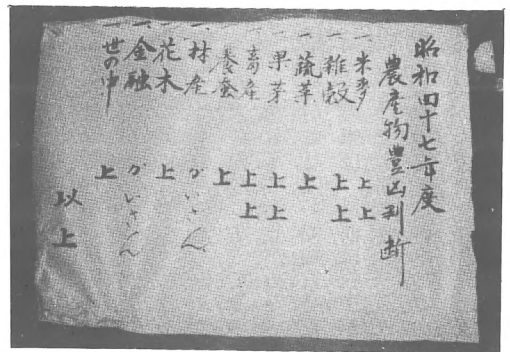 昭和四十七年度
農産物豊凶判断
一 米麦 上上
一 雑穀 上上
一 蔬菜 上
一 果芽 上上
一 畜産 上上
一 養蚕 上
一 林産 がいさん
一 花木 上
一 金融 がいさん
一 世の中 上
以上